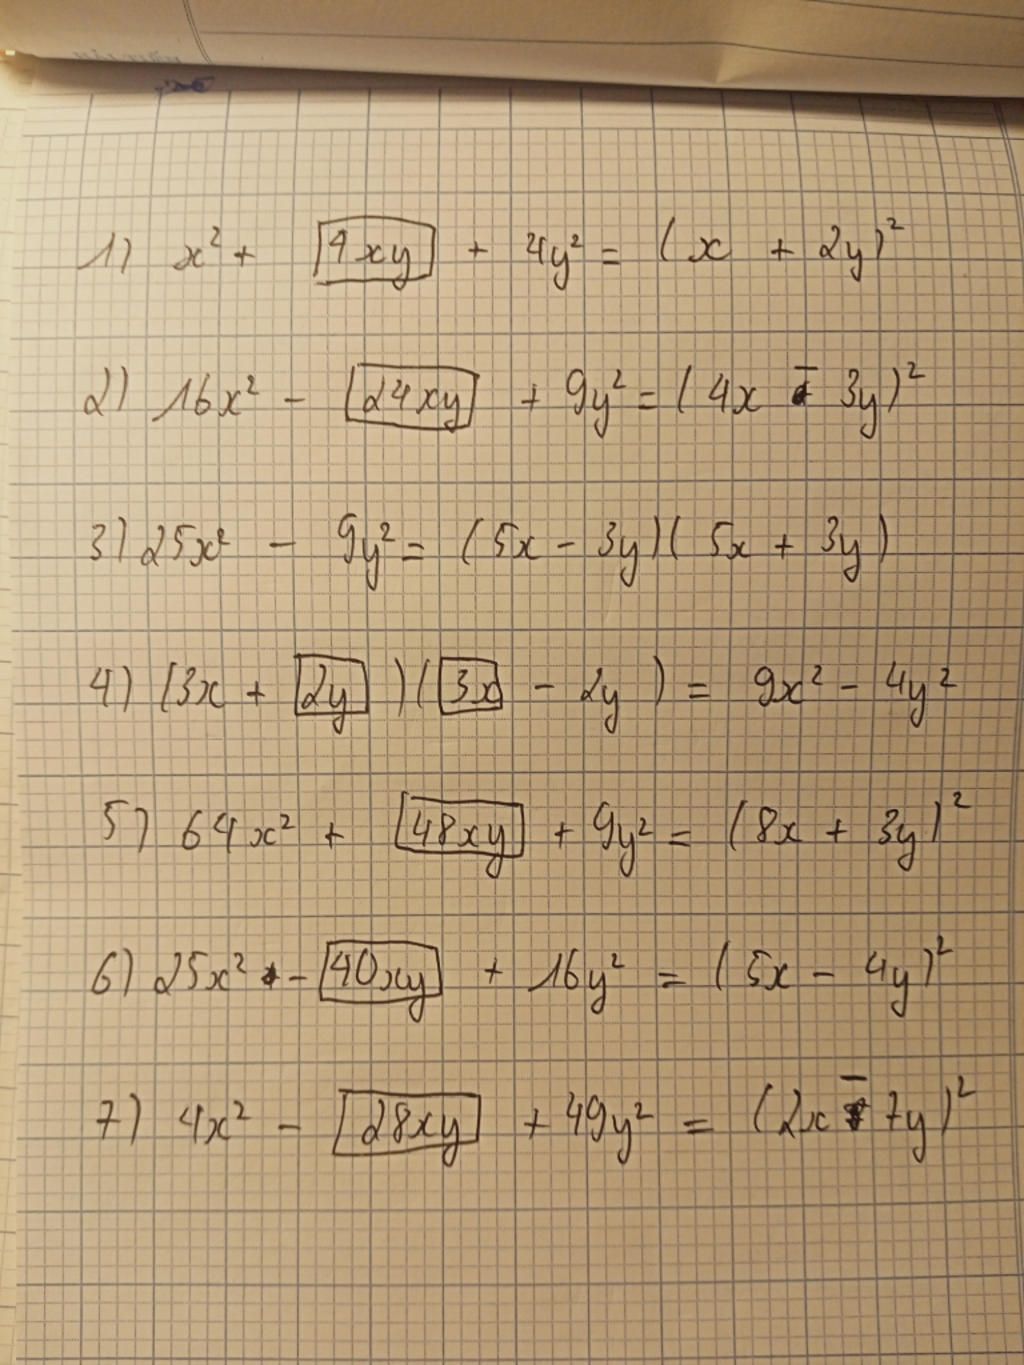 1) x² + 4xy + 4y² = (x + 2y)²
2) 16x² - 24xy + 9y² = (4x - 3y)²
3) 25x² - 9y² = (5x - 3y)(5x + 3y)
4) (3x + 2y)(3x - 2y) = 9x² - 4y²
5) 64x² + 48xy + 9y² = (8x + 3y)²
6) 25x² - 40xy + 16y² = (5x - 4y)²
7) 4x² - 28xy + 49y² = (2x - 7y)²